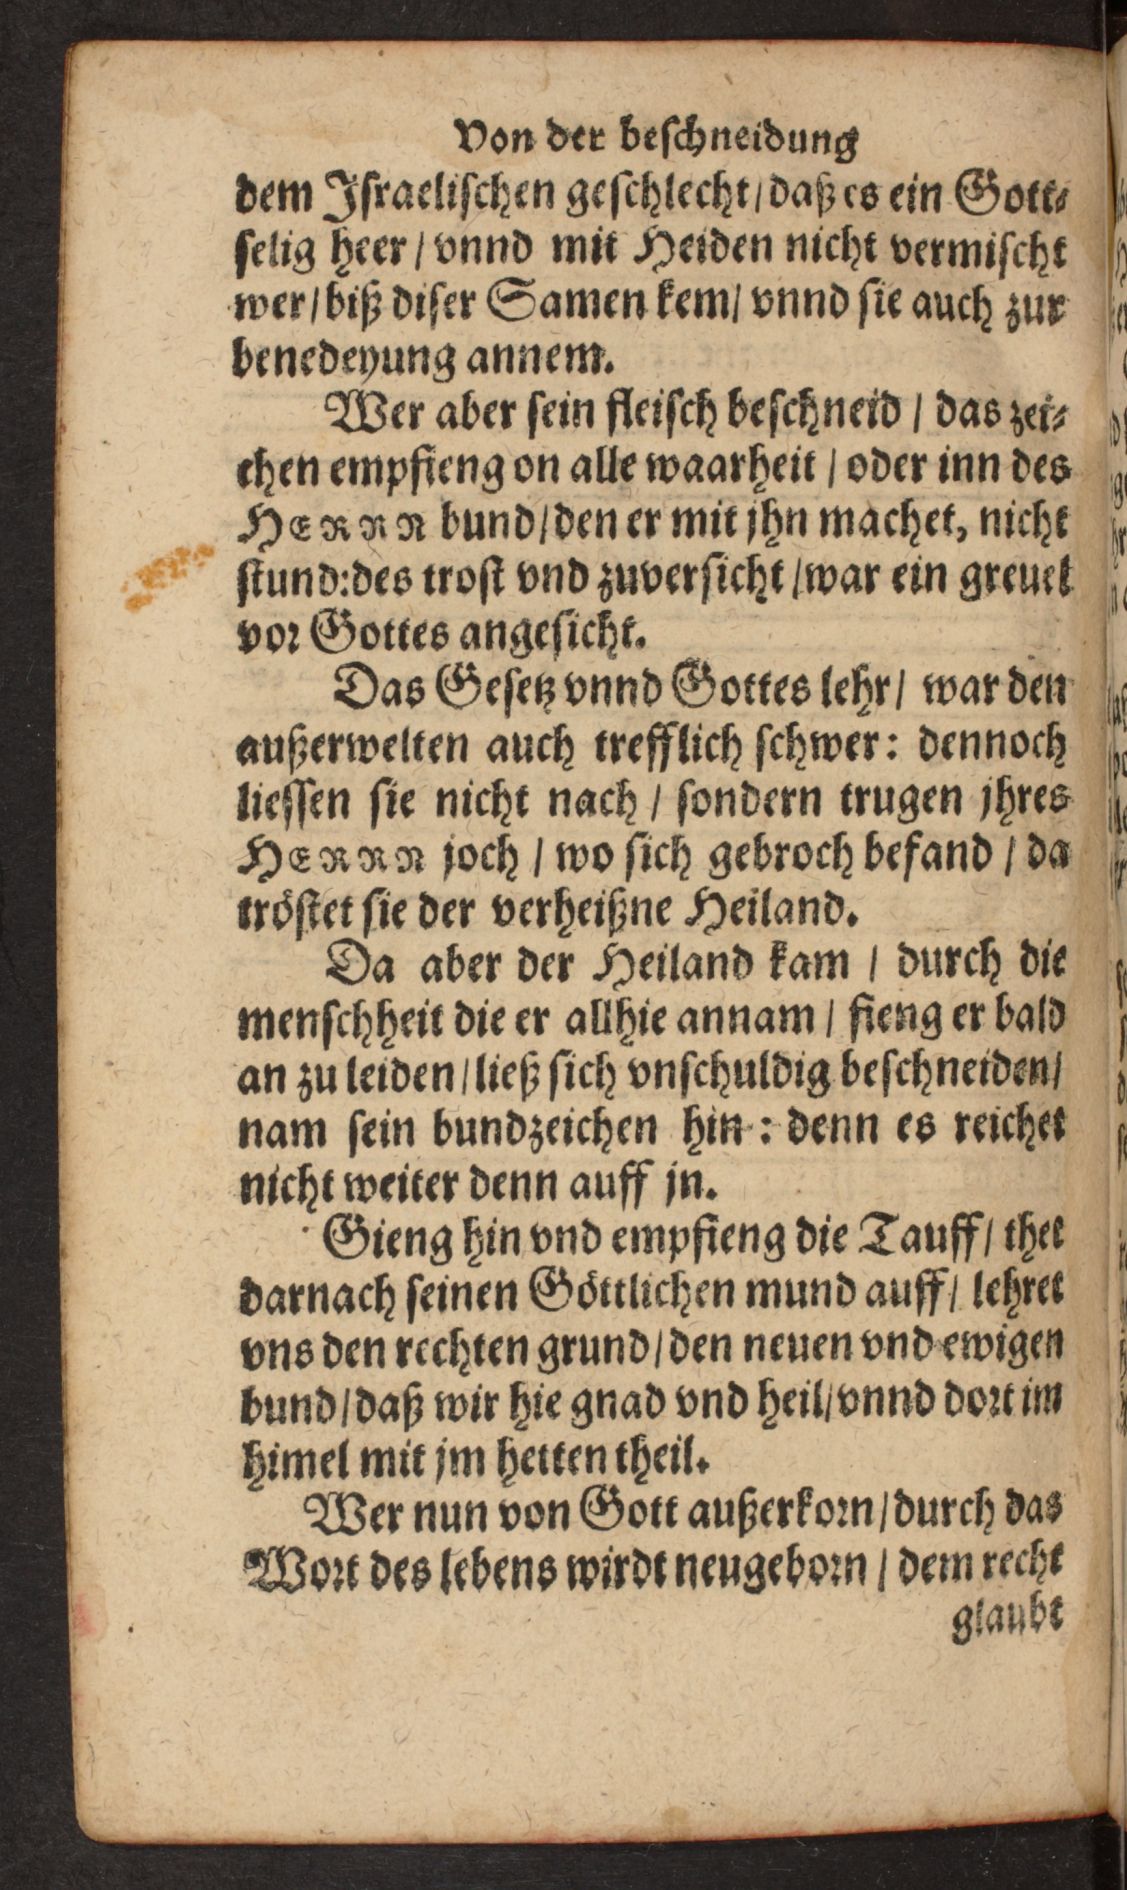 Von der beschneidung
dem Israelischen geschlecht / daß es ein Gott-
selig heer / vnnd mit Heiden nicht vermischt
wer / biß diser Samen kem / vnnd sie auch zur
benedeyung annem.
Wer aber sein fleisch beschneid / das zei-
chen empfieng on alle waarheit / oder inn des
HERRN bund / den er mit jhn machet, nicht
stund: des trost vnd zuversicht / war ein greuel
vor Gottes angesicht.
Das Gesetz vnnd Gottes lehr / war den
außerwelten auch trefflich schwer: dennoch
liessen sie nicht nach / sondern trugen jhres
HERRN joch / wo sich gebroch befand / da
tröstet sie der verheißne Heiland.
Da aber der Heiland kam / durch die
menschheit die er allhie annam / fieng er bald
an zu leiden / ließ sich vnschuldig beschneiden /
nam sein bundzeichen hin: denn es reichet
nicht weiter denn auff jn.
Gieng hin vnd empfieng die Tauff / thet
darnach seinen Göttlichen mund auff / lehret
vns den rechten grund / den neuen vnd ewigen
bund / daß wir hie gnad vnd heil / vnnd dort im
himel mit jm hetten theil.
Wer nun von Gott außerkorn / durch das
Wort des lebens wirdt neugeborn / dem recht
glaubt